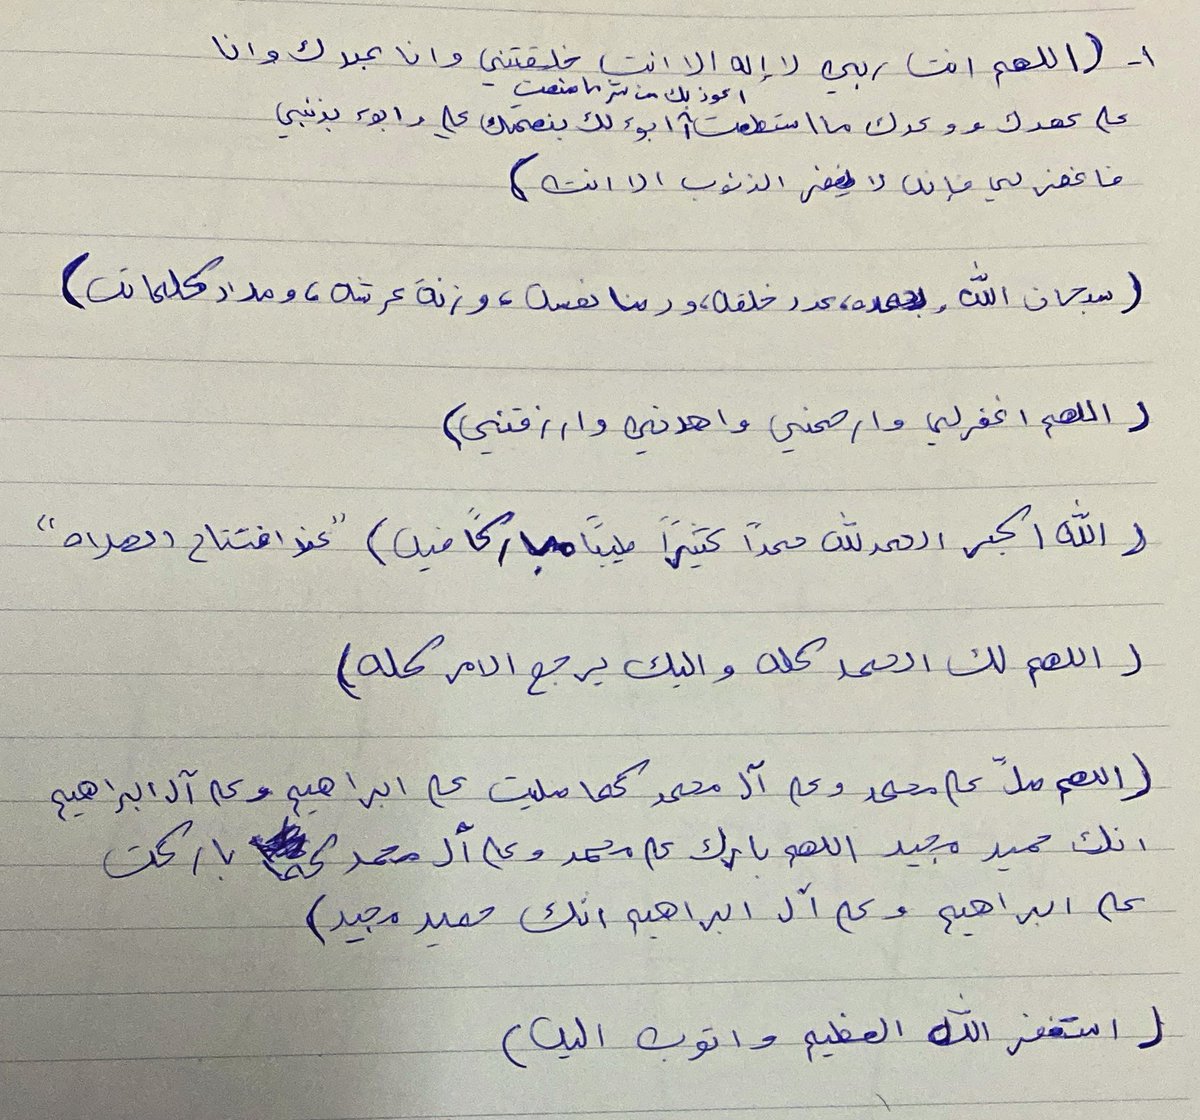 ١- (اللهم انت ربي لا إله الا انت خلقتني وانا عبدك وانا
اعوذ بك من شر ما صنعت
على عهدك ووعدك ما استطعت أبوء لك بنعمتك علي وابوء بذنبي
فاغفر لي فإنه لا يغفر الذنوب الا انت)
(سبحان الله وبحمده، عدد خلقه، ورضا نفسه، وزنة عرشه، ومداد كلماته)
(اللهم اغفرلي وارحمني واهدني وارزقني)
(الله اكبر الحمدلله حمدًا كثيرًا طيبًا مباركًا فيه) "عند افتتاح الصلاه"
(اللهم لك الحمد كله واليك يرجع الامر كله)
(اللهم صلّ على محمد وعلى آل محمد كما صليت على ابراهيم وعلى آل ابراهيم
انك حميد مجيد اللهم بارك على محمد وعلى آل محمد كما باركت
على ابراهيم وعلى آل ابراهيم انك حميد مجيد)
(استغفر الله العظيم واتوب اليه)